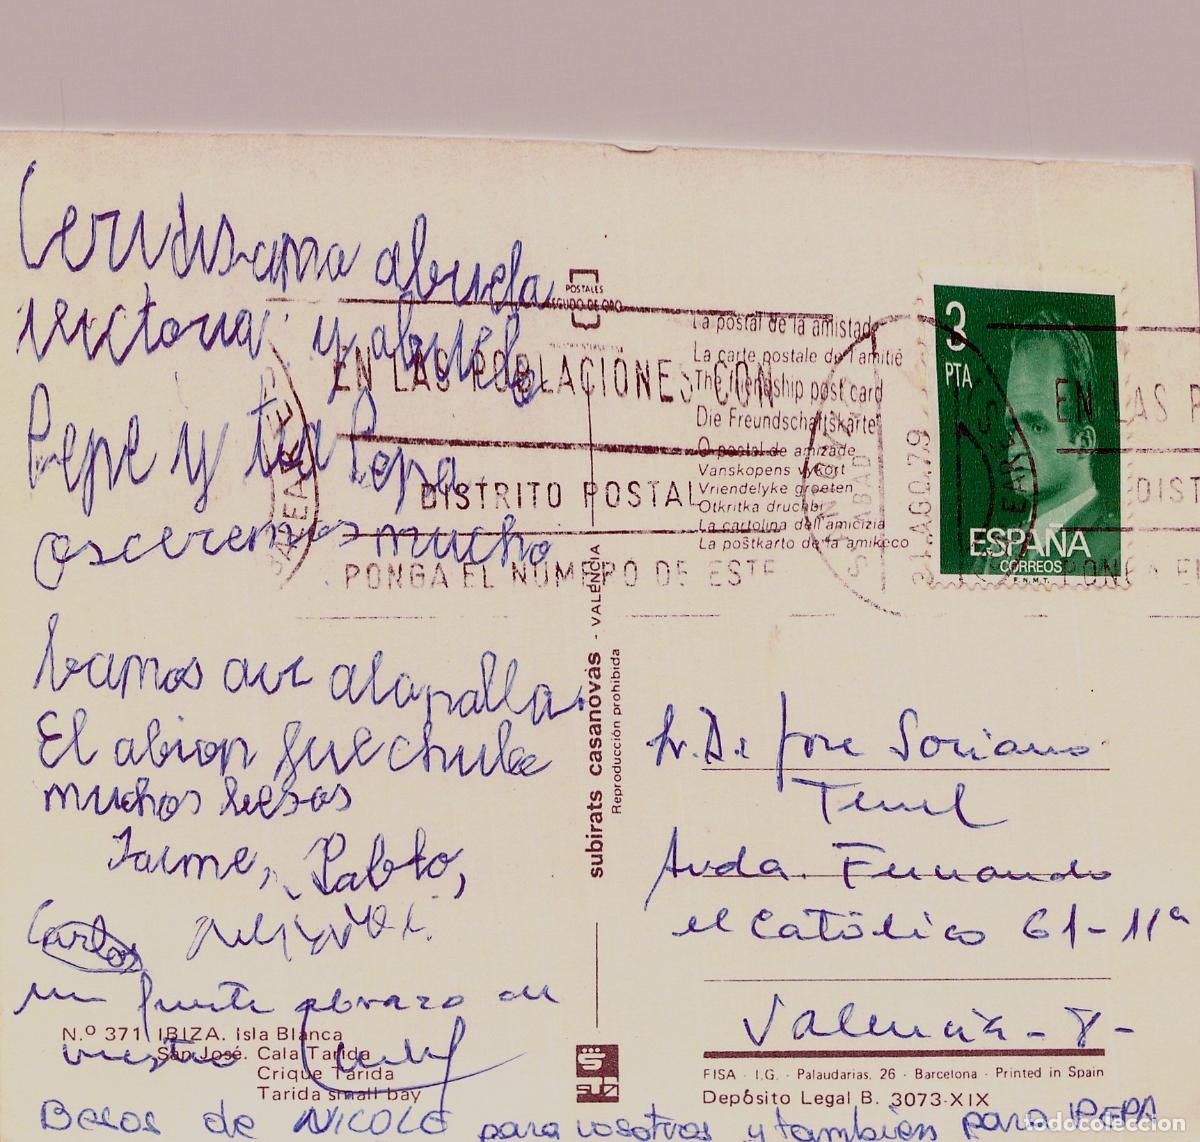 abuela
victoria y abuelo
Pepe y tia Pepa
mucho
bamos
El abion fue chule
muchos besos
Jaime, Pablo,
Carlos
un fuerte abrazo de
vuestro
Besos de NICOLE para vosotros y también para PEPA
Nº 371 IBIZA. Isla Blanca
San José. Cala Tarida
Crique Tarida
Tarida small bay
POSTALES
ESCUDO DE ORO
EN LAS POBLACIONES CON
DISTRITO POSTAL
PONGA EL NUMERO DE ESTE
BALEARES
La postal de la amistad
La carte postale de l'amitié
The friendship post card
Die Freundschaftskarte
O postal de amizade
Vanskopens vykort
Vriendelyke groeten
Otkritka druchbi
La cartolina dell'amicizia
La poŝtkarto de la amikeco
subirats casanovas - VALENCIA
Reproducción prohibida
3
PTA
ESPAÑA
CORREOS
F.N.M.T.
AGO.79
EN LAS P
DIST
PONGA EL
Sr. D. Jose Soriano
Teruel
Avda. Fernando
el Católico 61-11ª
Valencia-8-
FISA - I.G. - Palaudarias, 26 - Barcelona - Printed in Spain
Depósito Legal B. 3073-XIX
todocoleccion